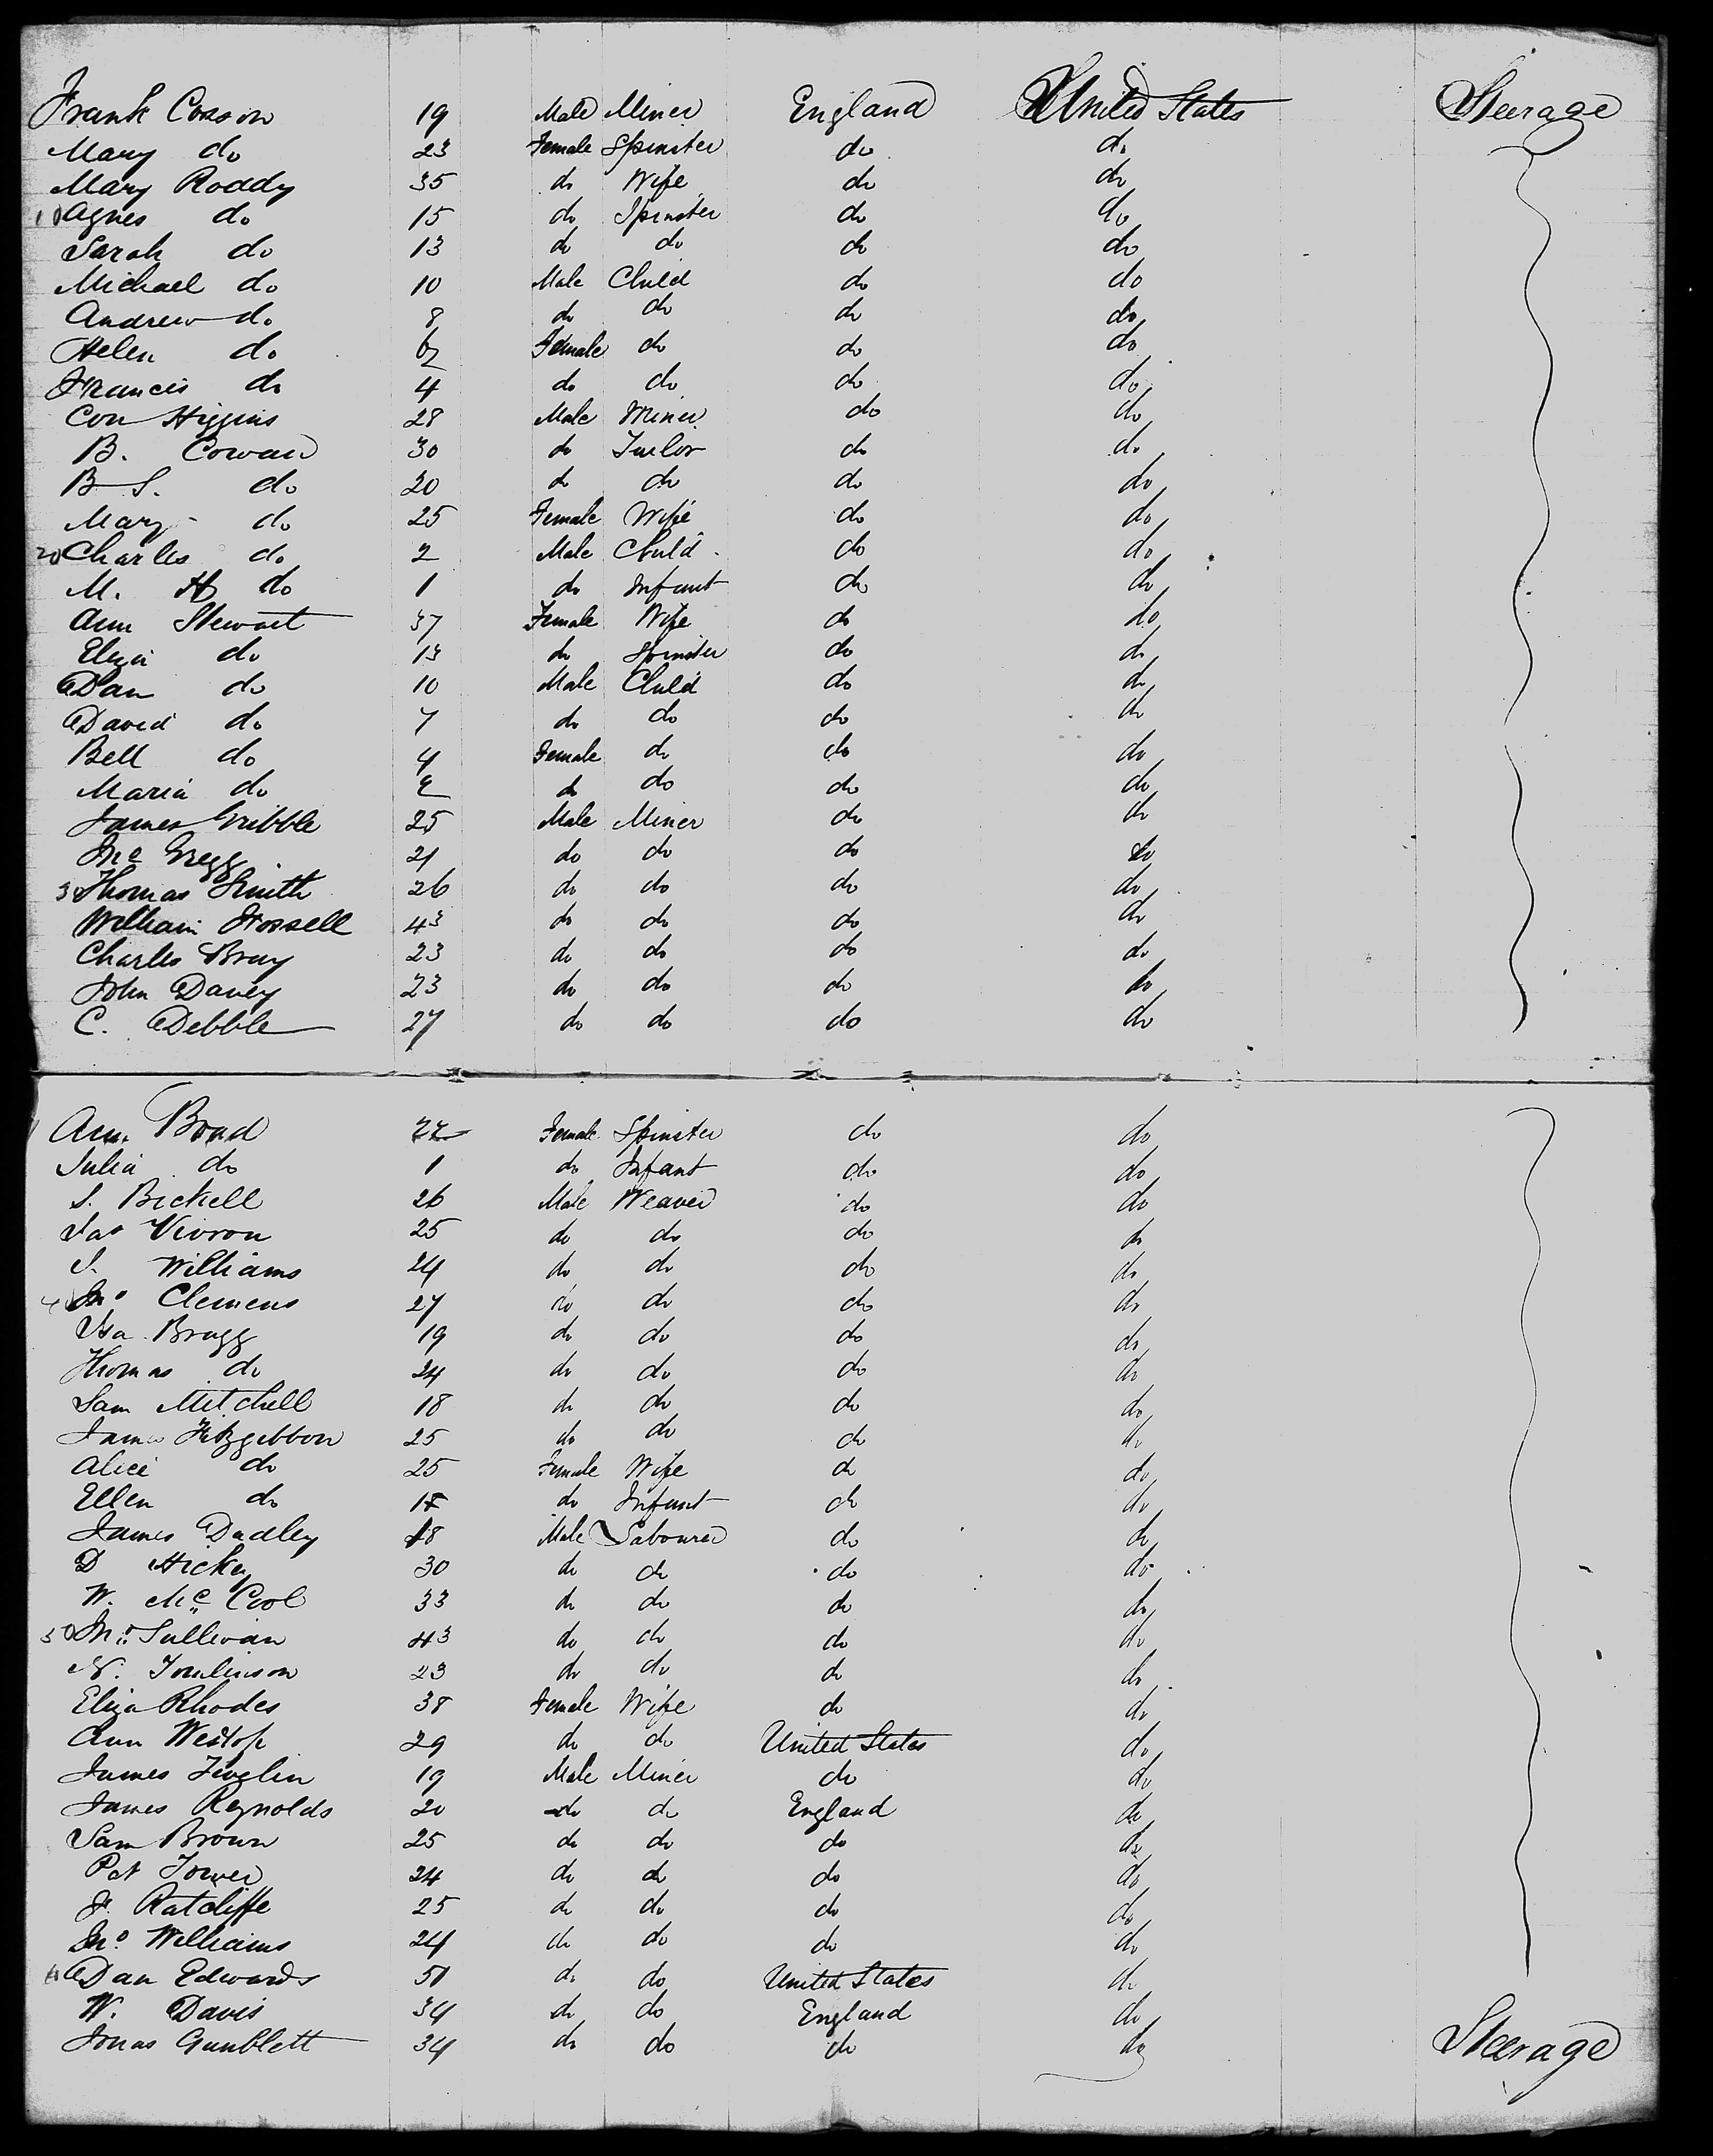 Frank Cosson 19 Male Miner England United States Steerage
Mary do 23 Female Spinster do do
Mary Roddy 35 do Wife do do
10 Agnes do 15 do Spinster do do
Sarah do 13 do do do do
Michael do 10 Male Child do do
Andrew do 8 do do do do
Helen do 6 Female do do do
Francis do 4 do do do do
Con Higgins 28 Male Miner do do
B. Cowan 30 do Tailor do do
B S. do 20 do do do do
Mary do 25 Female Wife do do
20 Charles do 2 Male Child do do
M. H do 1 do Infant do do
Ann Stewart 37 Female Wife do do
Eliza do 13 do Spinster do do
Dan do 10 Male Child do do
David do 7 do do do do
Bell do 4 Female do do do
Maria do 2 do do do do
James Gribble 25 Male Miner do do
Jno Gregg 21 do do do do
30 Thomas Smith 26 do do do do
William Hossell 43 do do do do
Charles Bray 23 do do do do
John Davey 23 do do do do
C. Debble 27 do do do do
Ann Broad 22 Female Spinster do do
Julia do 1 do Infant do do
S. Bickell 26 Male Weaver do do
Jas Vivron 25 do do do do
S. Williams 24 do do do do
40 Jno Clemens 27 do do do do
Isa Bragg 19 do do do do
Thomas do 24 do do do do
Sam Mitchell 18 do do do do
James Fitzgibbon 25 do do do do
Alice do 25 Female Wife do do
Ellen do 1 do Infant do do
James Dudley 18 Male Labourer do do
D Hickey 30 do do do do
W. McCool 33 do do do do
50 Jno Sullivan 43 do do do do
N. Tomlinson 23 do do do do
Eliza Rhodes 38 Female Wife do do
Ann Westop 29 do do United States do
James 19 Male Miner do do
James Reynolds 20 do do England do
Sam Brown 25 do do do do
Pat Tower 24 do do do do
J. Ratcliffe 25 do do do do
Jno. Williams 24 do do do do
Dan Edwards 51 do do United States do
W. Davis 34 do do England do
Jonas Gumblett 34 do do do do Steerage